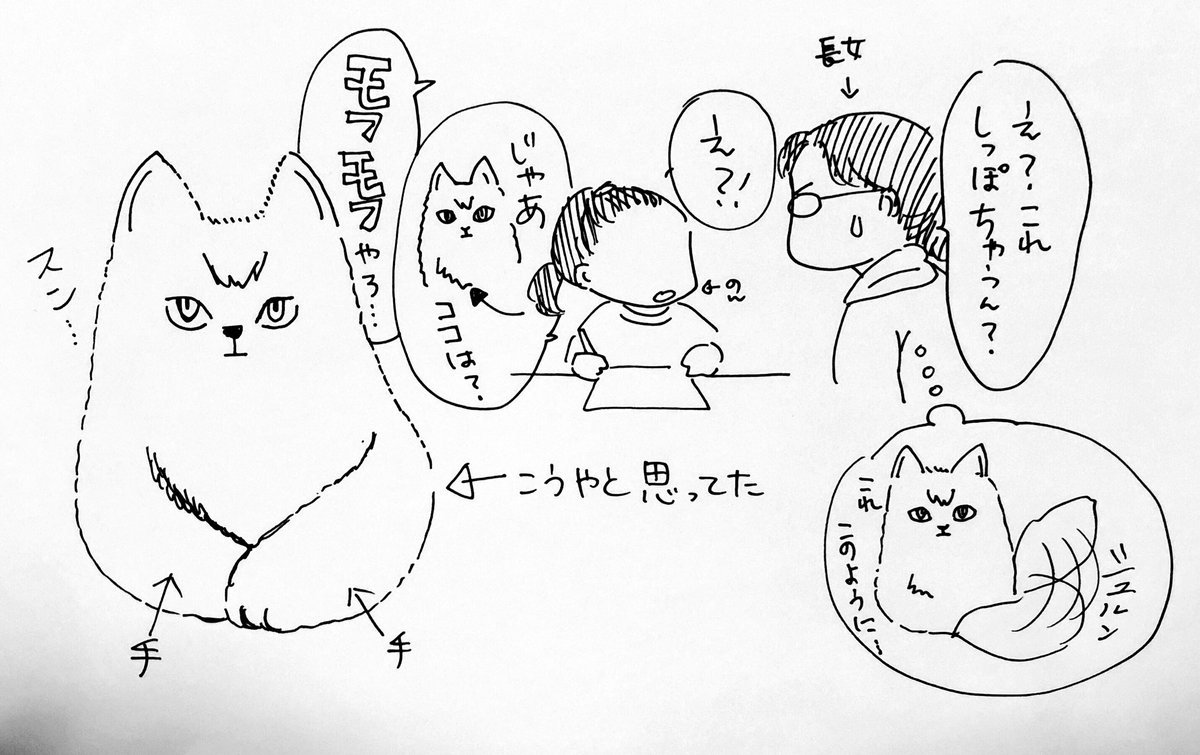 長女
え?これ
しっぽちゃうん?
え?!
のん
じゃあ
ココは?
モフモフやろ…
スン…
手
手
こうやと思ってた
これ
このように…